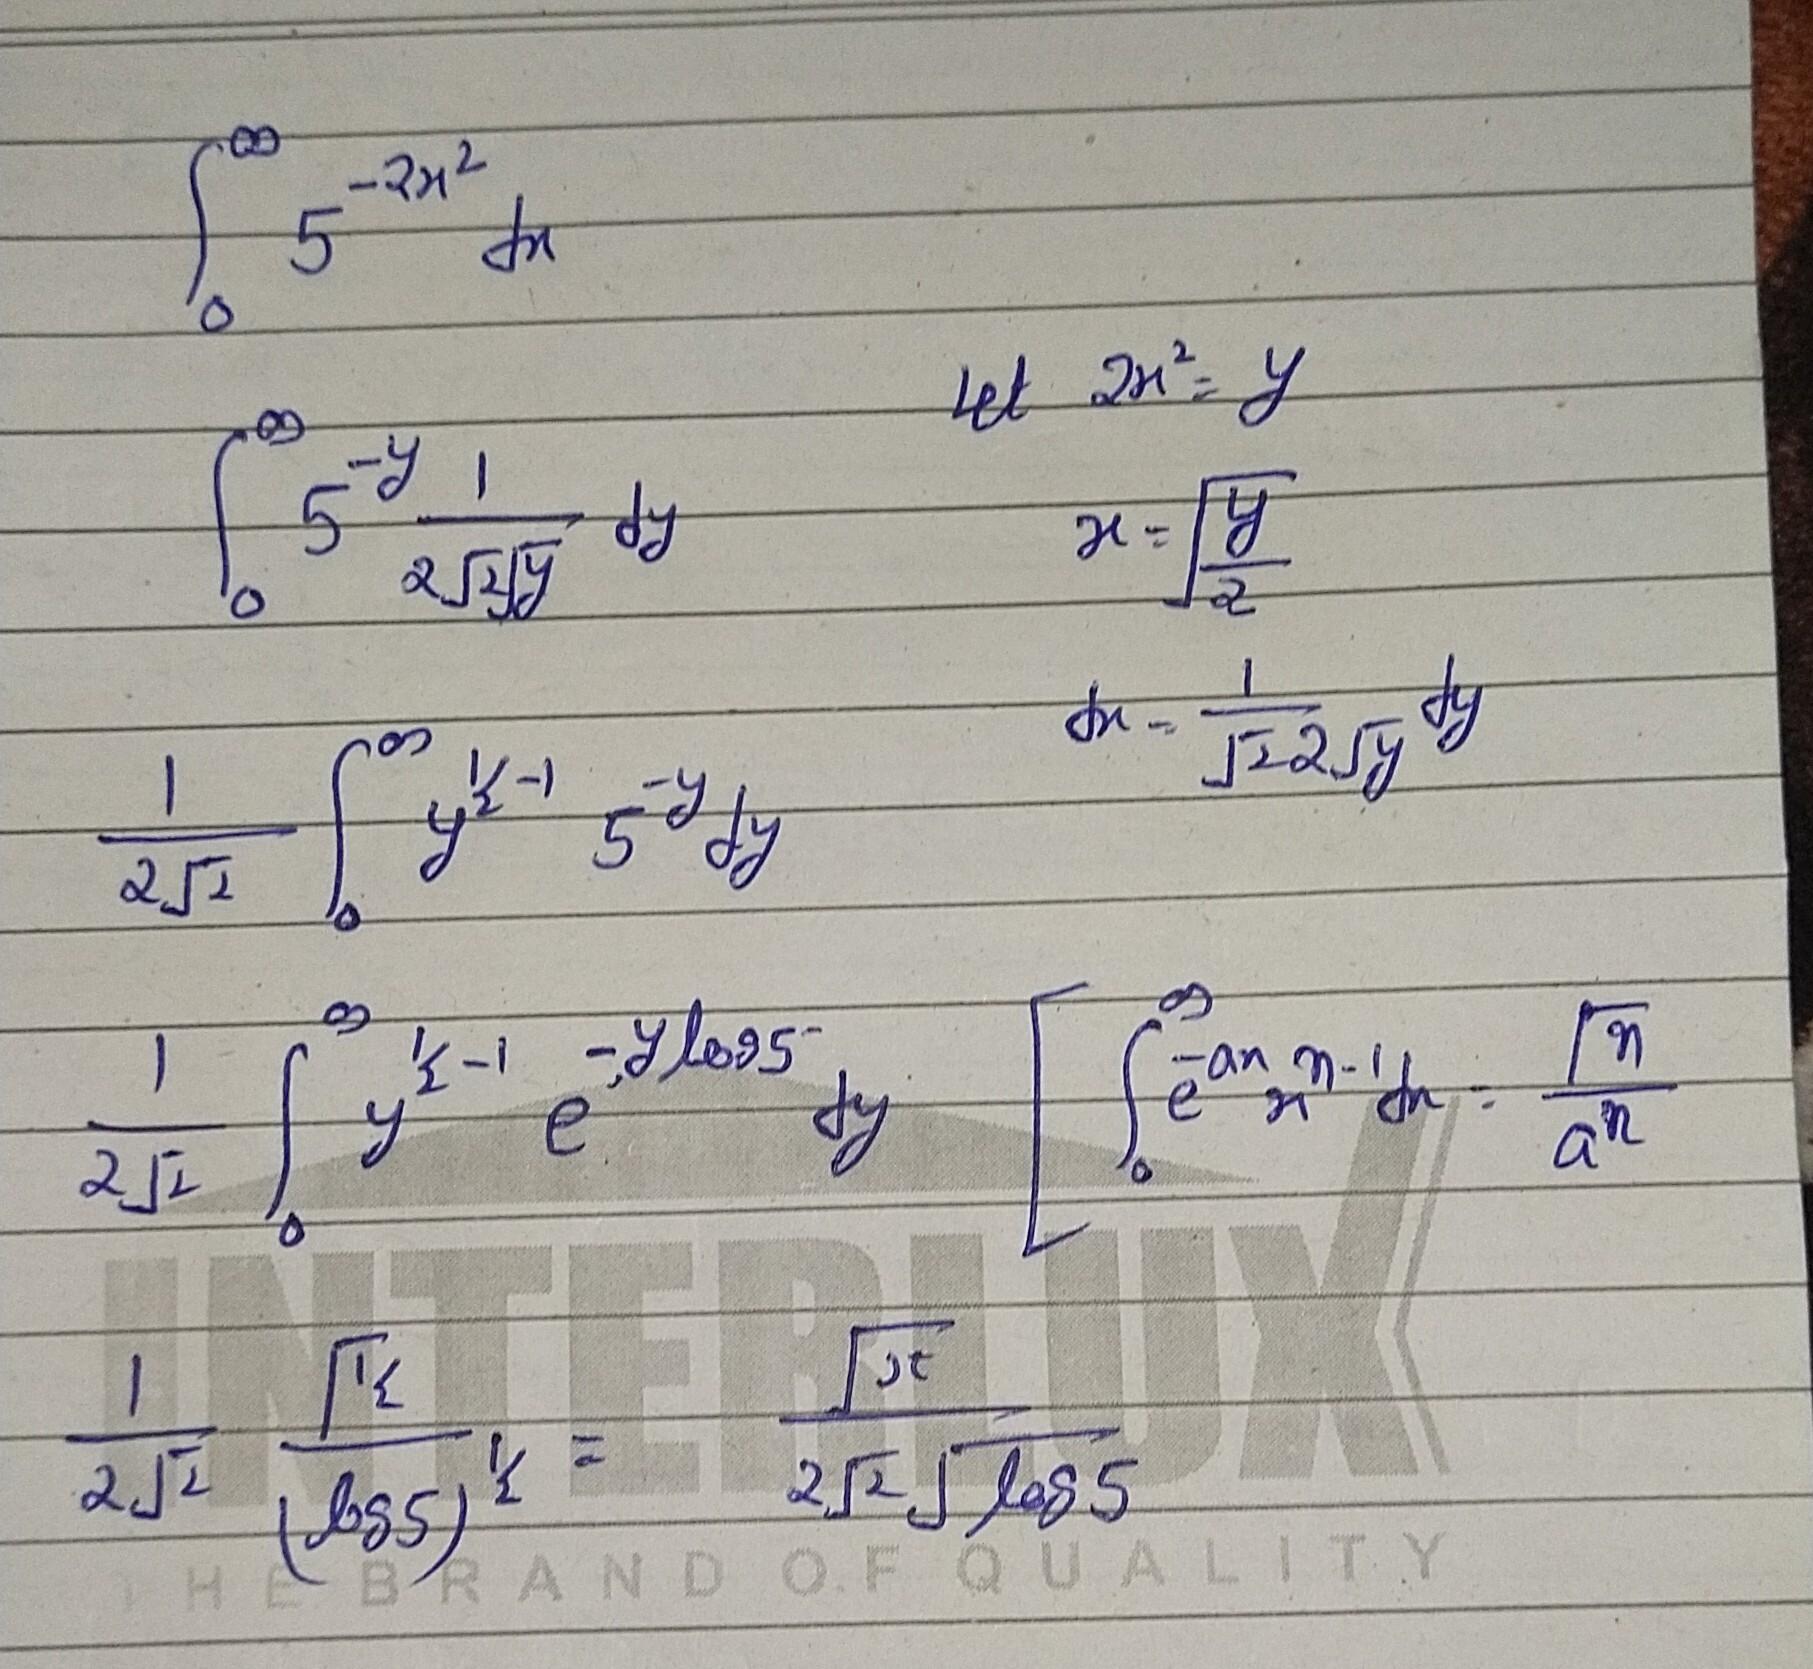 ∫₀^∞ 5^(-2x²) dx
Let 2x² = y
∫₀^∞ 5^(-y) 1/(2√2√y) dy
x = √(y/2)
dx = 1/(√2 2√y) dy
1/(2√2) ∫₀^∞ y^(1/2-1) 5^(-y) dy
1/(2√2) ∫₀^∞ y^(1/2-1) e^(-y log5) dy [ ∫₀^∞ e^(-ax) x^(n-1) dx = Γn/aⁿ
1/(2√2) Γ(1/2)/(log5)^(1/2) = √π/(2√2 √log5)
INTERLUX
THE BRAND OF QUALITY